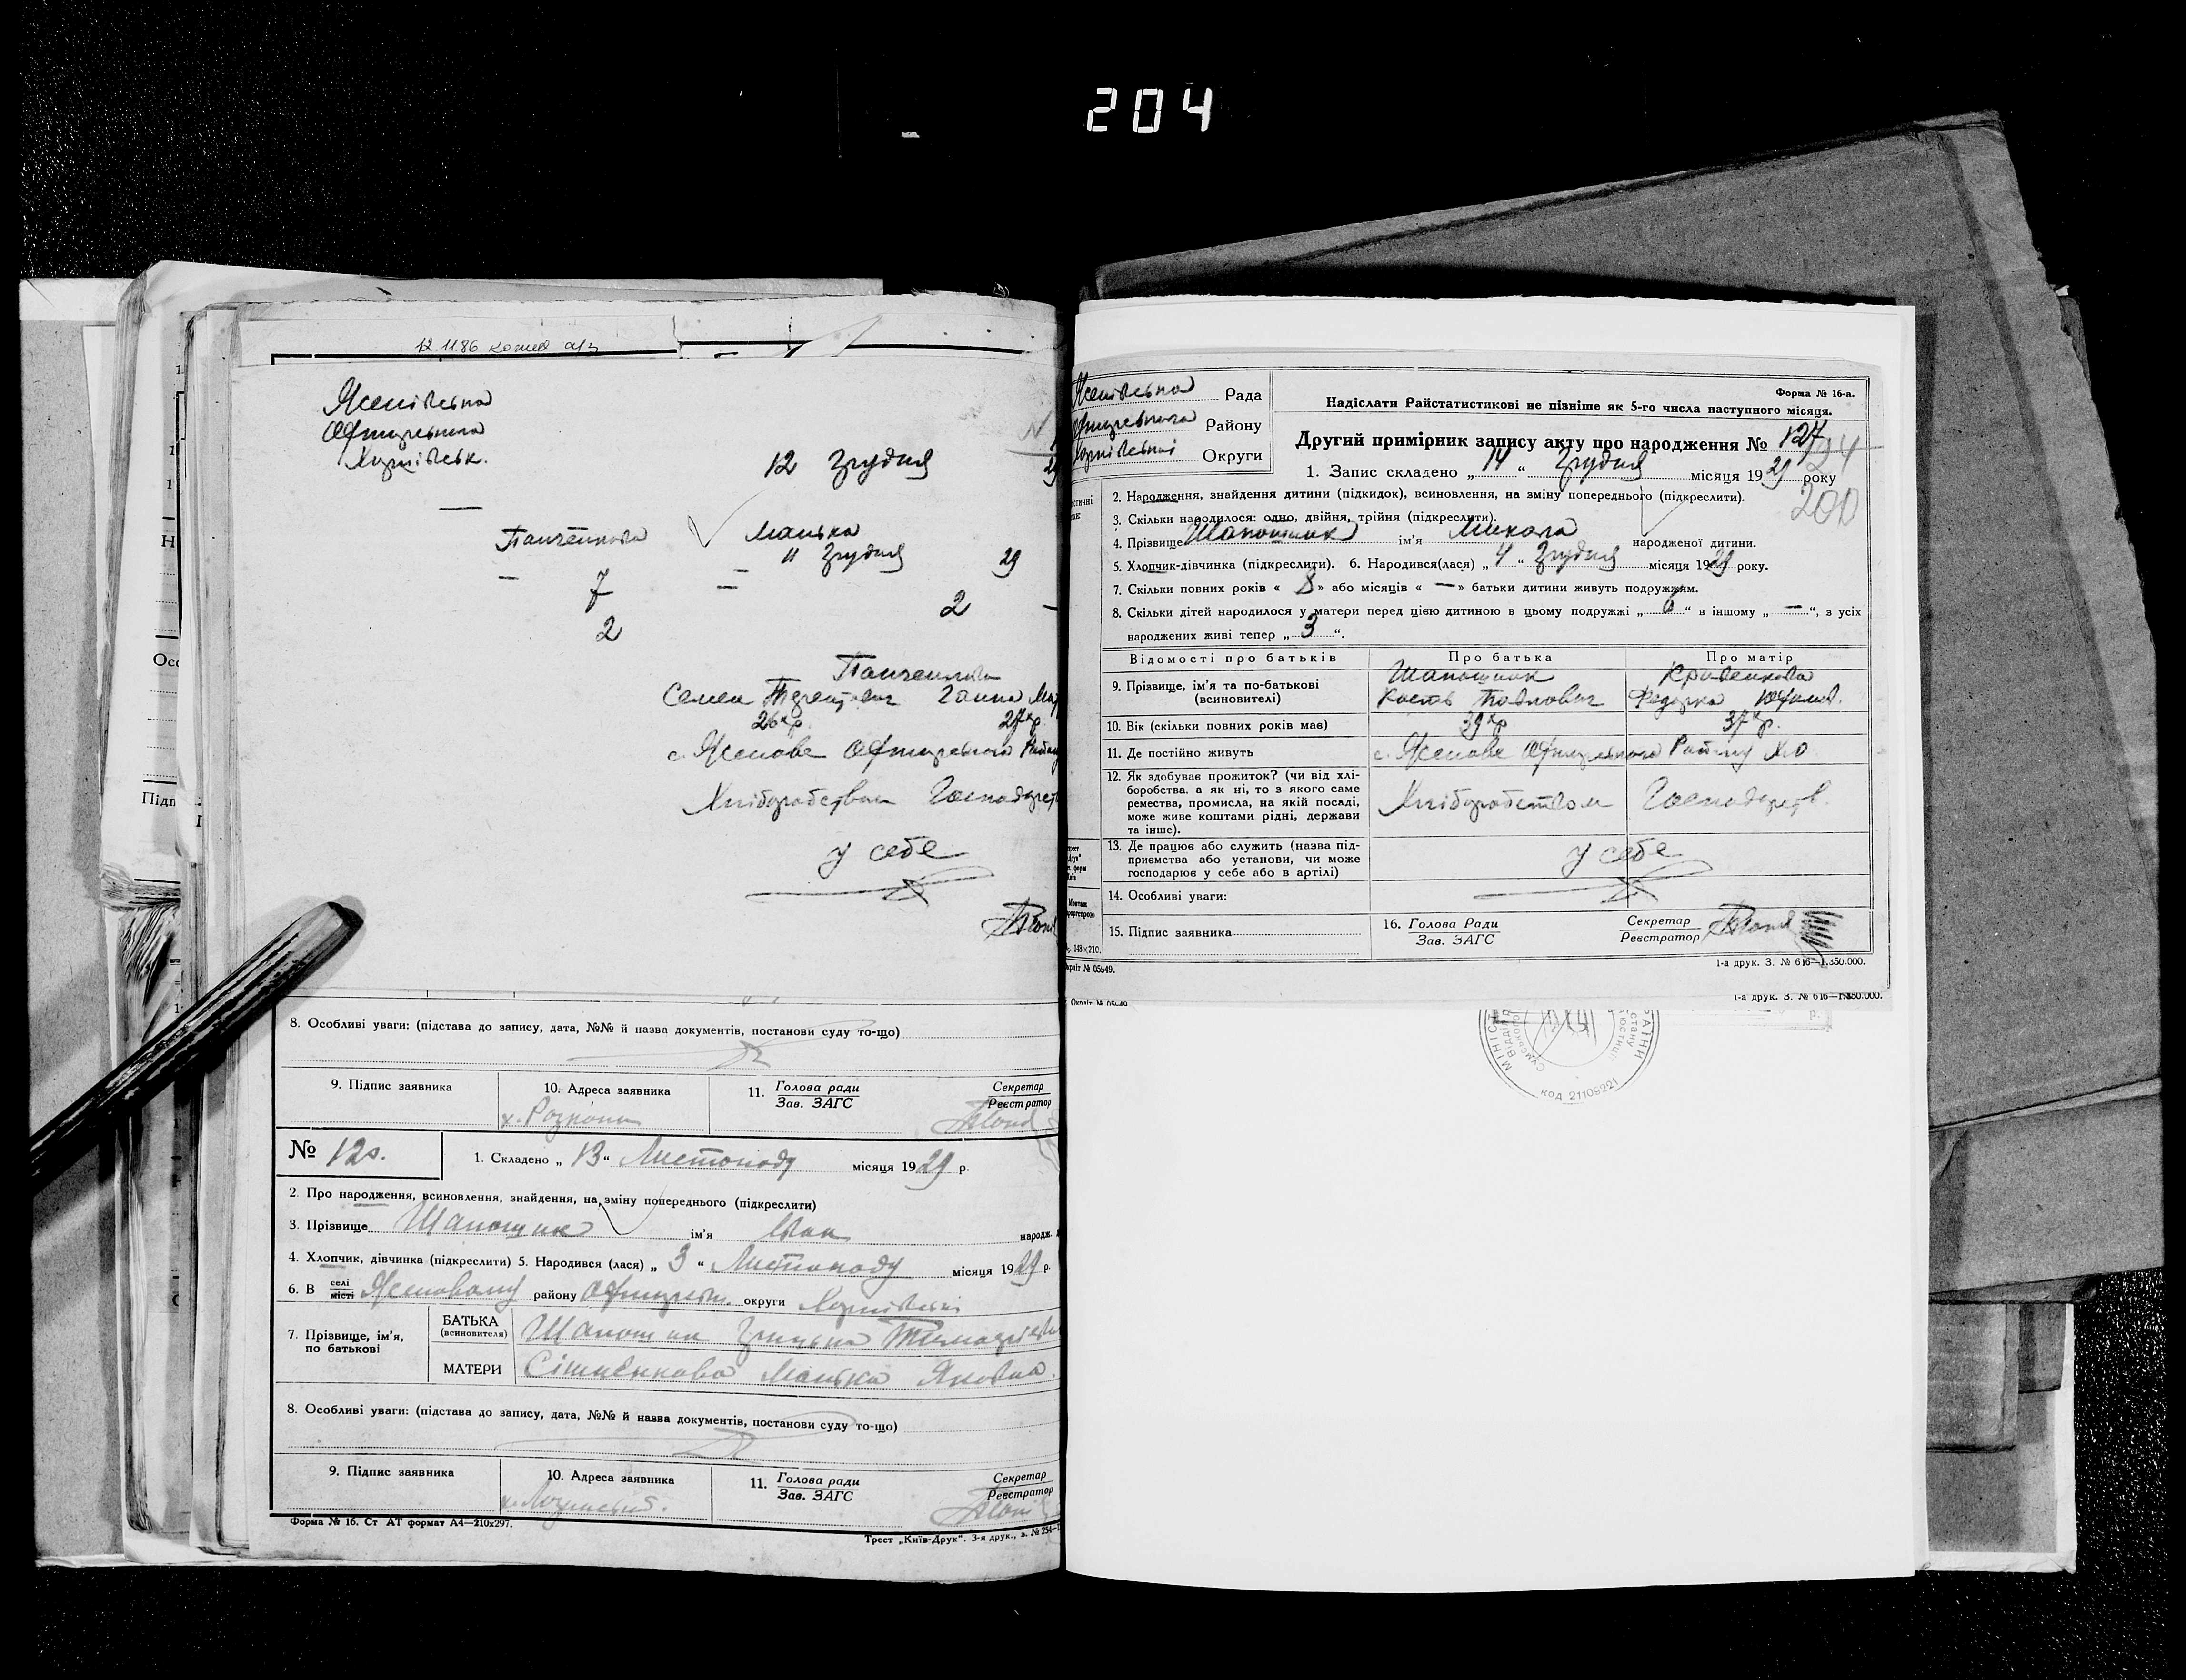 204
12.11.86 копія
Ясенівська
Охтирського
Харківськ.
12 Грудня 29
Панченкова Манька
11 Грудня 29
— —
7 2 —
2
Панченкови
Семен Ганна
26 р. 27 р
с. Ясенове Охтирського
Хліборобством Господарст
у себе
8. Особливі уваги: (підстава до запису, дата, №№ й назва документів, постанови суду то-що)
9. Підпис заявника 10. Адреса заявника 11. Голова ради Секретар
Зав. ЗАГС Реєстратор
№ 120. 1. Складено „ 13 “ Листопаду місяця 1929 р.
2. Про народження, всиновлення, знайдення, на зміну попереднього (підкреслити)
3. Прізвище Шапошник ім'я Іван народж.
4. Хлопчик, дівчинка (підкреслити) 5. Народився (лася) „ 3 “ Листопаду місяця 1929 р.
6. В селі Ясеновому району Охтирськ. округи Харківськ.
місті
7. Прізвище, ім'я, по батькові
БАТЬКА (всиновителя) Шапошник Грицько
МАТЕРИ Манька Яковна.
8. Особливі уваги: (підстава до запису, дата, №№ й назва документів, постанови суду то-що)
9. Підпис заявника 10. Адреса заявника 11. Голова ради Секретар
Зав. ЗАГС Реєстратор
Форма № 16. Ст АТ формат А4—210х297.
Трест „Київ-Друк“. 3-я друк., з. № 254—
Ясенівська Рада
Охтирського Району
Харківської Округи
Форма № 16-а.
Надіслати Райстатистикові не пізніше як 5-го числа наступного місяця.
Другий примірник запису акту про народження № 127
124
1. Запис складено „ 14 “ Грудня місяця 1929 року
200
2. Народження, знайдення дитини (підкидок), всиновлення, на зміну попереднього (підкреслити).
3. Скільки народилося: одно, двійня, трійня (підкреслити).
4. Прізвище Шапошник ім'я Микола народженої дитини.
5. Хлопчик-дівчинка (підкреслити). 6. Народився(лася) „ 4 “ Грудня місяця 1929 року.
7. Скільки повних років « 8 » або місяців « — » батьки дитини живуть подружжям.
8. Скільки дітей народилося у матери перед цією дитиною в цьому подружжі „ 6 “ в іншому „ — “, з усіх
народжених живі тепер „ 3 “.
Відомості про батьків Про батька Про матір
9. Прізвище, ім'я та по-батькові (всиновителі) Шапошник Кость Павлович Кравенкова Федорка
10. Вік (скільки повних років має) 39 р 37 р.
11. Де постійно живуть с. Ясенове Охтирського Району Х.О.
12. Як здобуває прожиток? (чи від хлі-
боробства. а як ні, то з якого саме
ремества, промисла, на якій посаді,
може живе коштами рідні, держави
та інше). Хліборобством Господарств.
13. Де працює або служить (назва під-
приємства або установи, чи може
господарює у себе або в артілі) у себе
14. Особливі уваги:
15. Підпис заявника 16. Голова Ради Секретар
Зав. ЗАГС Реєстратор
1-а друк. З. № 616—1.350.000.
1-а друк. З. № 616—1.350.000.
код 21108221